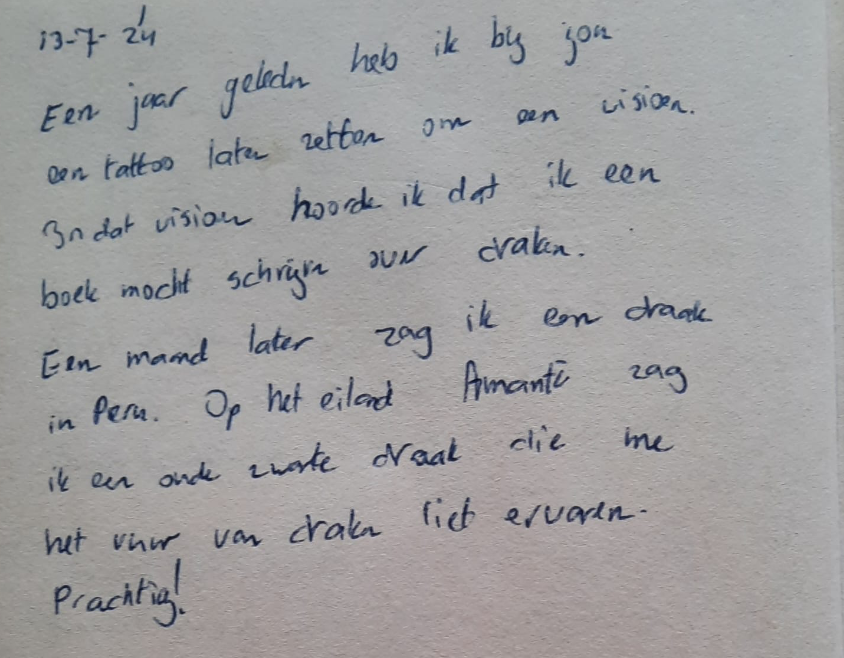 13-7-'24
Een jaar geleden heb ik bij jou
een tattoo laten zetten om een visioen.
In dat visioen hoorde ik dat ik een
boek mocht schrijven over draken.
Een maand later zag ik een draak
in Peru. Op het eiland Amantí zag
ik een oude zwarte draak die me
het vuur van draken liet ervaren.
Prachtig!